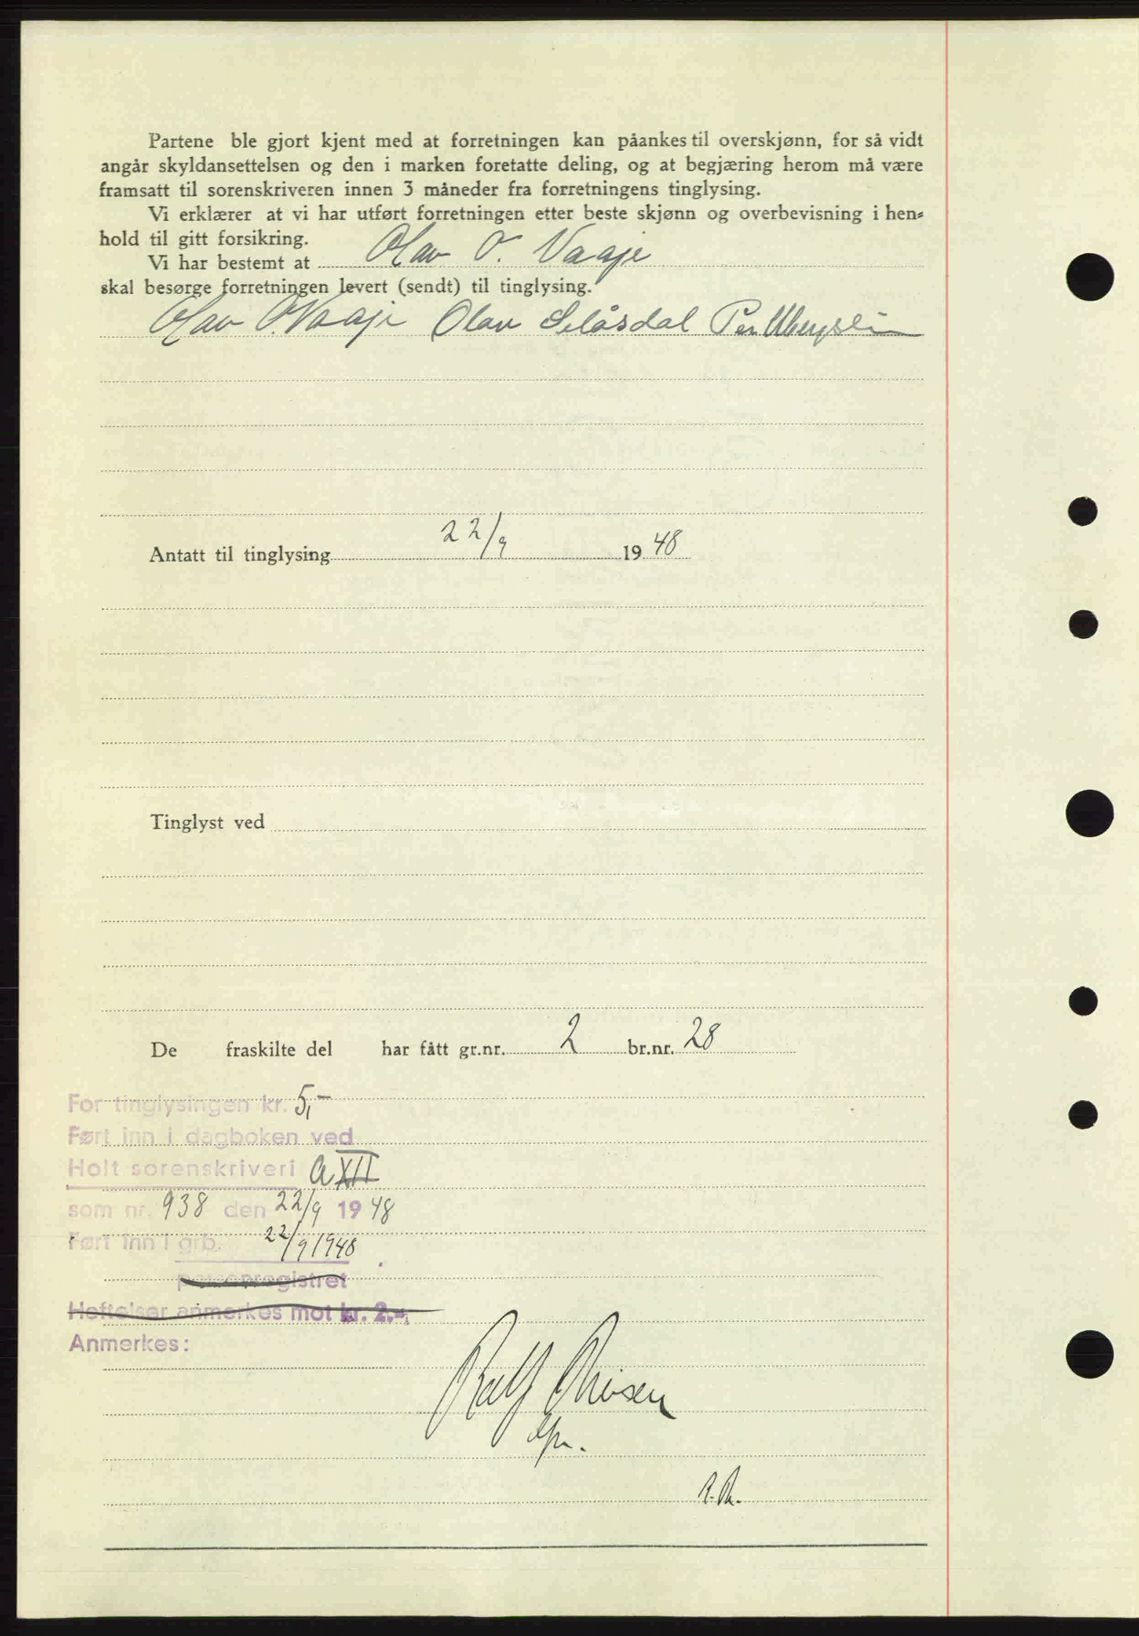 Partene ble gjort kjent med at forretningen kan påankes til overskjønn, for så vidt
angår skyldansettelsen og den i marken foretatte deling, og at begjæring herom må være
framsatt til sorenskriveren innen 3 måneder fra forretningens tinglysing.
Vi erklærer at vi har utført forretningen etter beste skjønn og overbevisning i hen-
hold til gitt forsikring.
Vi har bestemt at Olav O. Vaaje
skal besørge forretningen levert (sendt) til tinglysing.
Olav O. Vaaje Olav Selåsdal Per
Antatt til tinglysing 22/9 1948
Tinglyst ved
De fraskilte del har fått gr.nr. 2 br.nr. 28
For tinglysingen kr. 5,-
Ført inn i dagboken ved
Holt sorenskriveri a XII
som nr. 938 den 22/9 1948
Ført inn i grb. 22/9 1948
Heftelser anmerkes mot kr. 2.-
Anmerkes:
Ralf